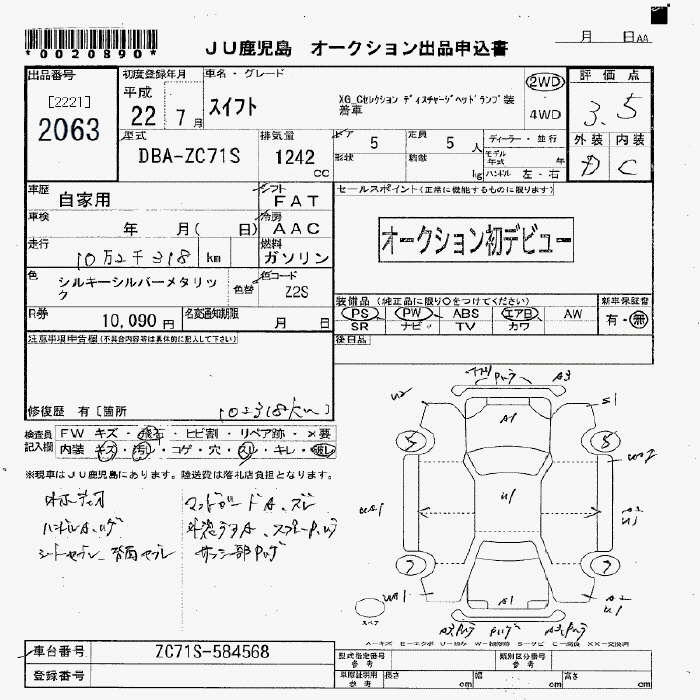 *0020890*
JU鹿児島 オークション出品申込書
月 日AA
出品番号
[2221]
2063
初度登録年月
平成
22 7月
車名・グレード
スイフト
XG_Cセレクション ディスチャージヘッドランプ装着車
2WD
4WD
評価点
3.5
外装 内装
D C
型式
DBA-ZC71S
排気量
1242
CC
ドア
5
形状
定員
5 人
積載
kg
ディーラー・並行
モデル年式 年
ハンドル 左・右
車歴
自家用
シフト
FAT
車検
年 月( 日)
冷房
AAC
走行
10万2千318 km
燃料
ガソリン
色
シルキーシルバーメタリック
色替
色コード
Z2S
R券
10,090 円
名変通知期限
月 日
セールスポイント(正常に機能するものに限ります)
オークション初デビュー
装備品(純正品に限り○をつけてください)
PS PW ABS エアB AW
SR ナビ TV カワ
新車保証書
有・無
後日品
注意事項申告欄(不具合内容等は具体的に記入して下さい)
修復歴 有[箇所
102318km]
検査員記入欄
FW キズ・飛石・ヒビ割・リペア跡・×要
内装 キズ・汚レ・コゲ・穴・スレ・キレ・破レ
※現車はJU鹿児島にあります。陸送費は落札店負担となります。
A3
S1
A1
5
5
U1
7
7
A1
スペア
A-キズ E-エクボ U-凹み W-補修跡 S-サビ C-腐食 XX-交換済
車台番号
ZC71S-584568
登録番号
型式指定番号
参考
類別区分番号
参考
車庫証明用
参考
長さ cm
幅 cm
高さ cm